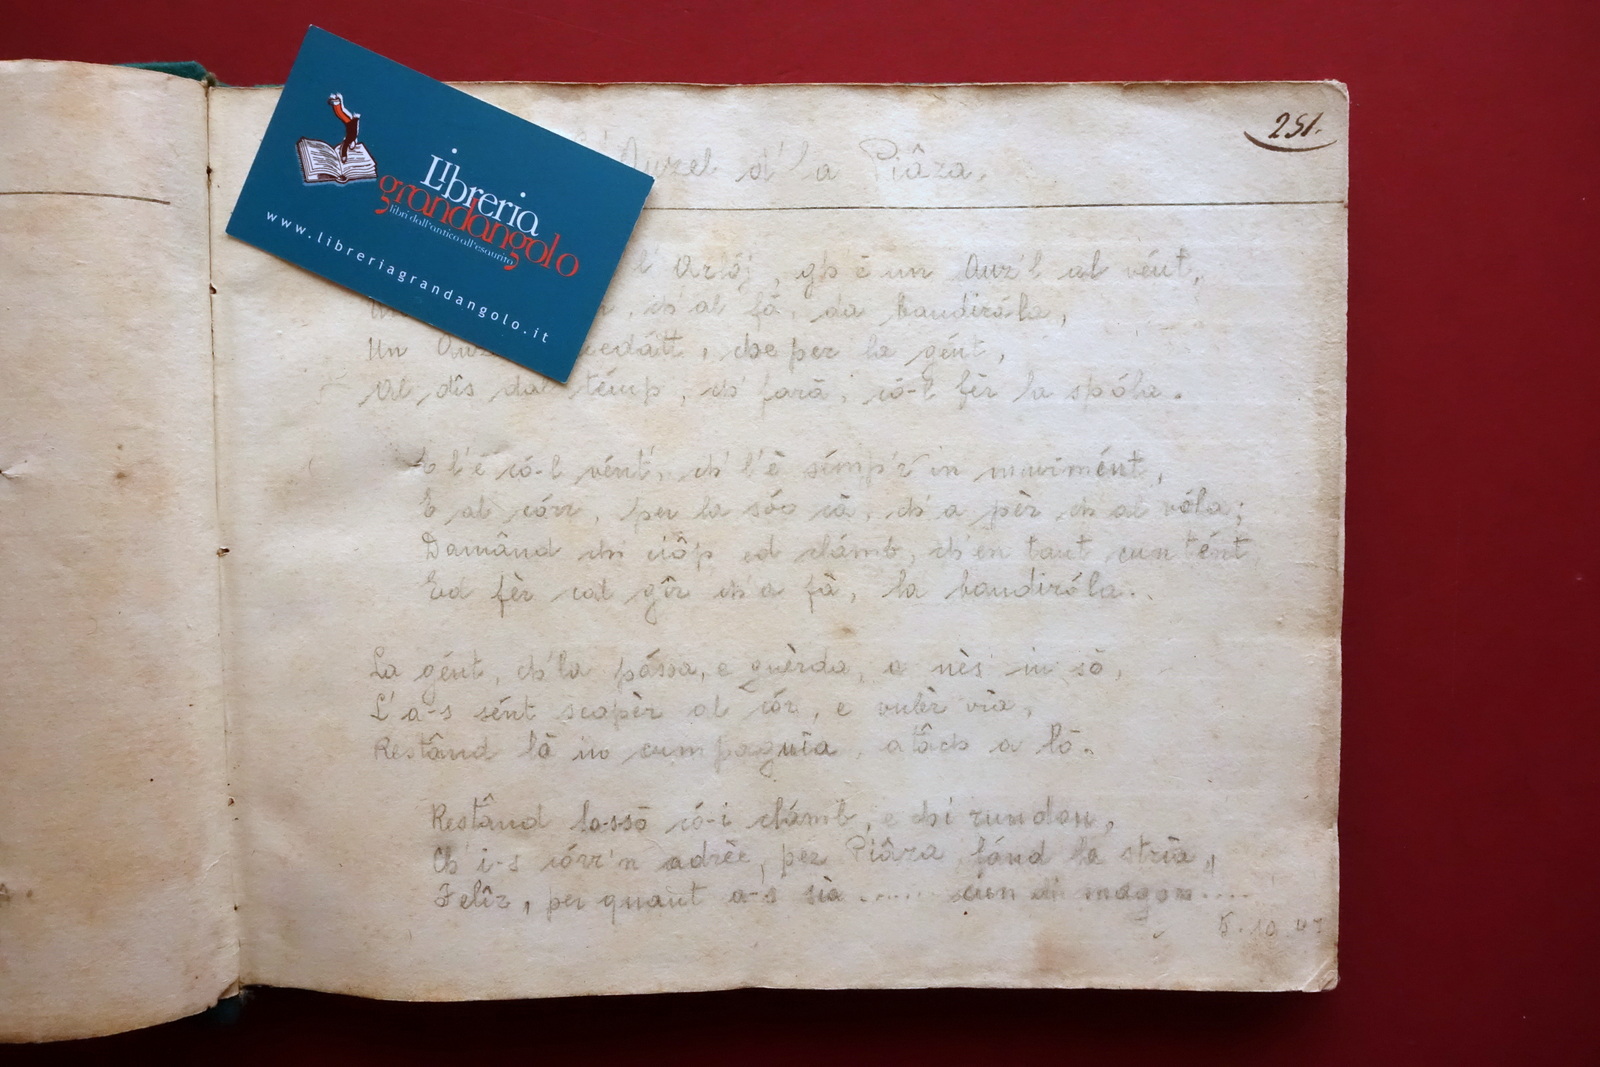 251.
Libreria
grandangolo
libri dall'antico all'esaurito
www.libreriagrandangolo.it
l'Auzel d' la Piâza.
l' Arlôj, gh è un Auz'l al vént,
ch' al fâ, da bandiróla,
Un che per la gént,
Al dîs dal témp, ch' farà, có-l fèr la spóla.
E l'è có-l vént, ch' l'è sémp'r in muvimént,
E al córr, per la sóo cà, ch' a pèr ch al vóla;
Damând chi ciôp ed clámb, ch'en tant cuntént
Ed fèr cal gîr ch'a fà, la bandiróla..
La gént, ch'la pássa, e guèrda, a nès in sô,
L' a-s sént scapèr al cór, e vulèr vìa,
Restând là in cumpagnìa, atâch a lô.
Restând la-ssô có-i clámb, e chi rundon,
Ch' i-s córr'n adrèe, per Piâza, fánd la strìa,
Felîz, per quant a-s sia ...... cun di magon....
5.10.47